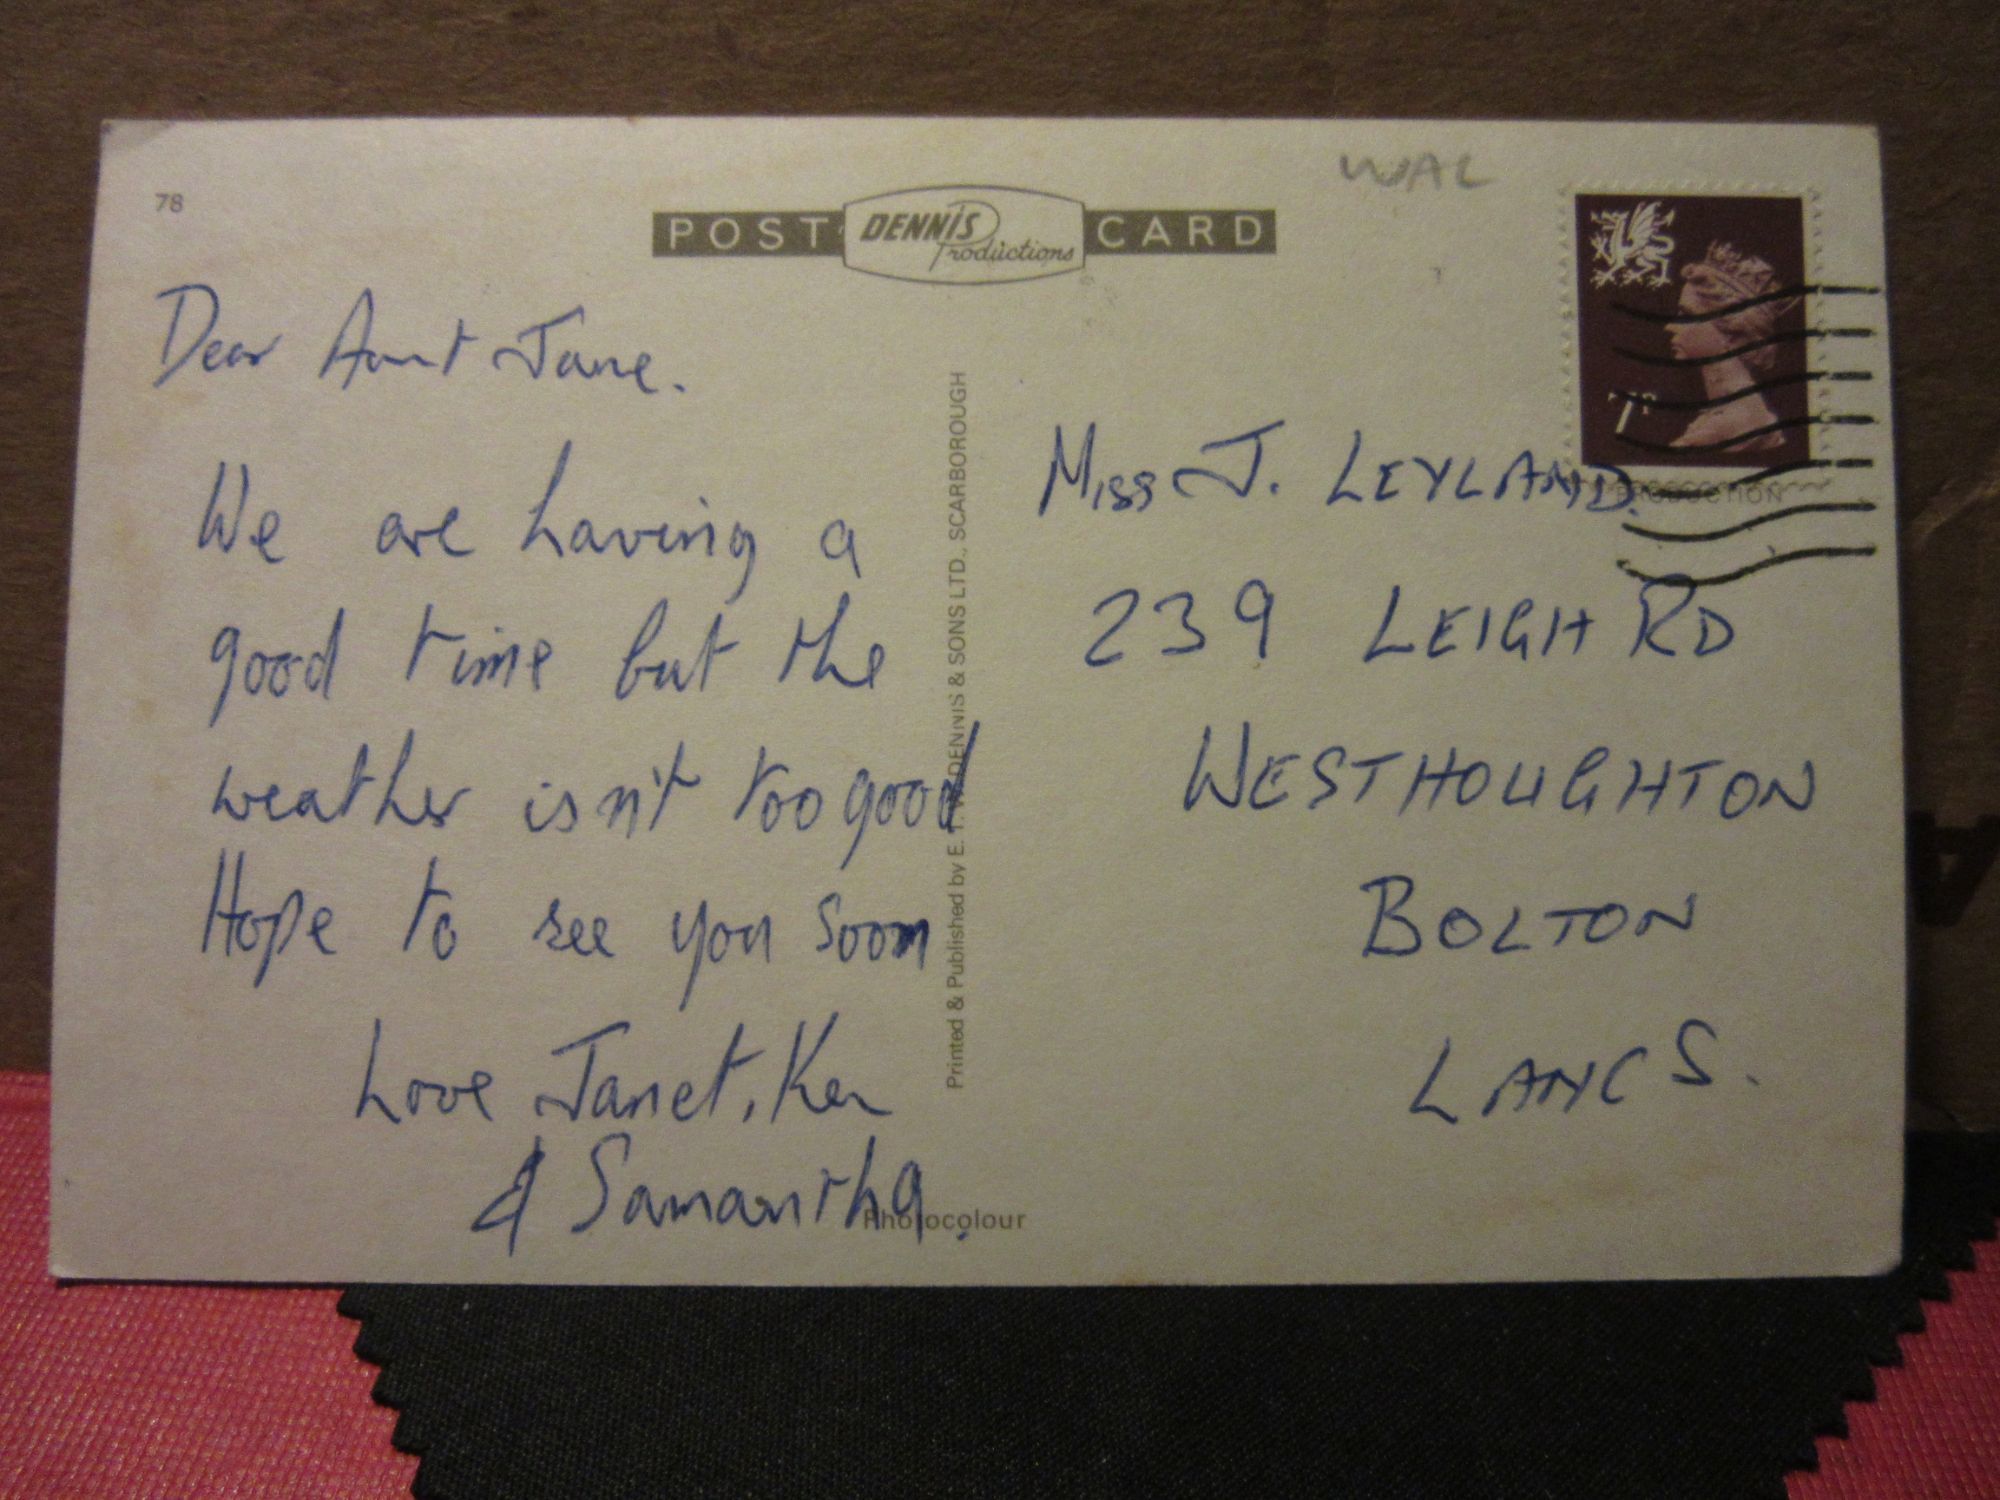 WAL
78
POST DENNIS Productions CARD
7P
Dear Aunt Jane.
We are having a
good time but the
weather isn't too good
Hope to see you soon
Love Janet, Ken
& Samantha.
Printed & Published by E. T. W. DENNIS & SONS LTD., SCARBOROUGH
Photocolour
PRODUCTION
Miss J. LEYLAND.
239 LEIGH RD
WESTHOUGHTON
BOLTON
LANCS.